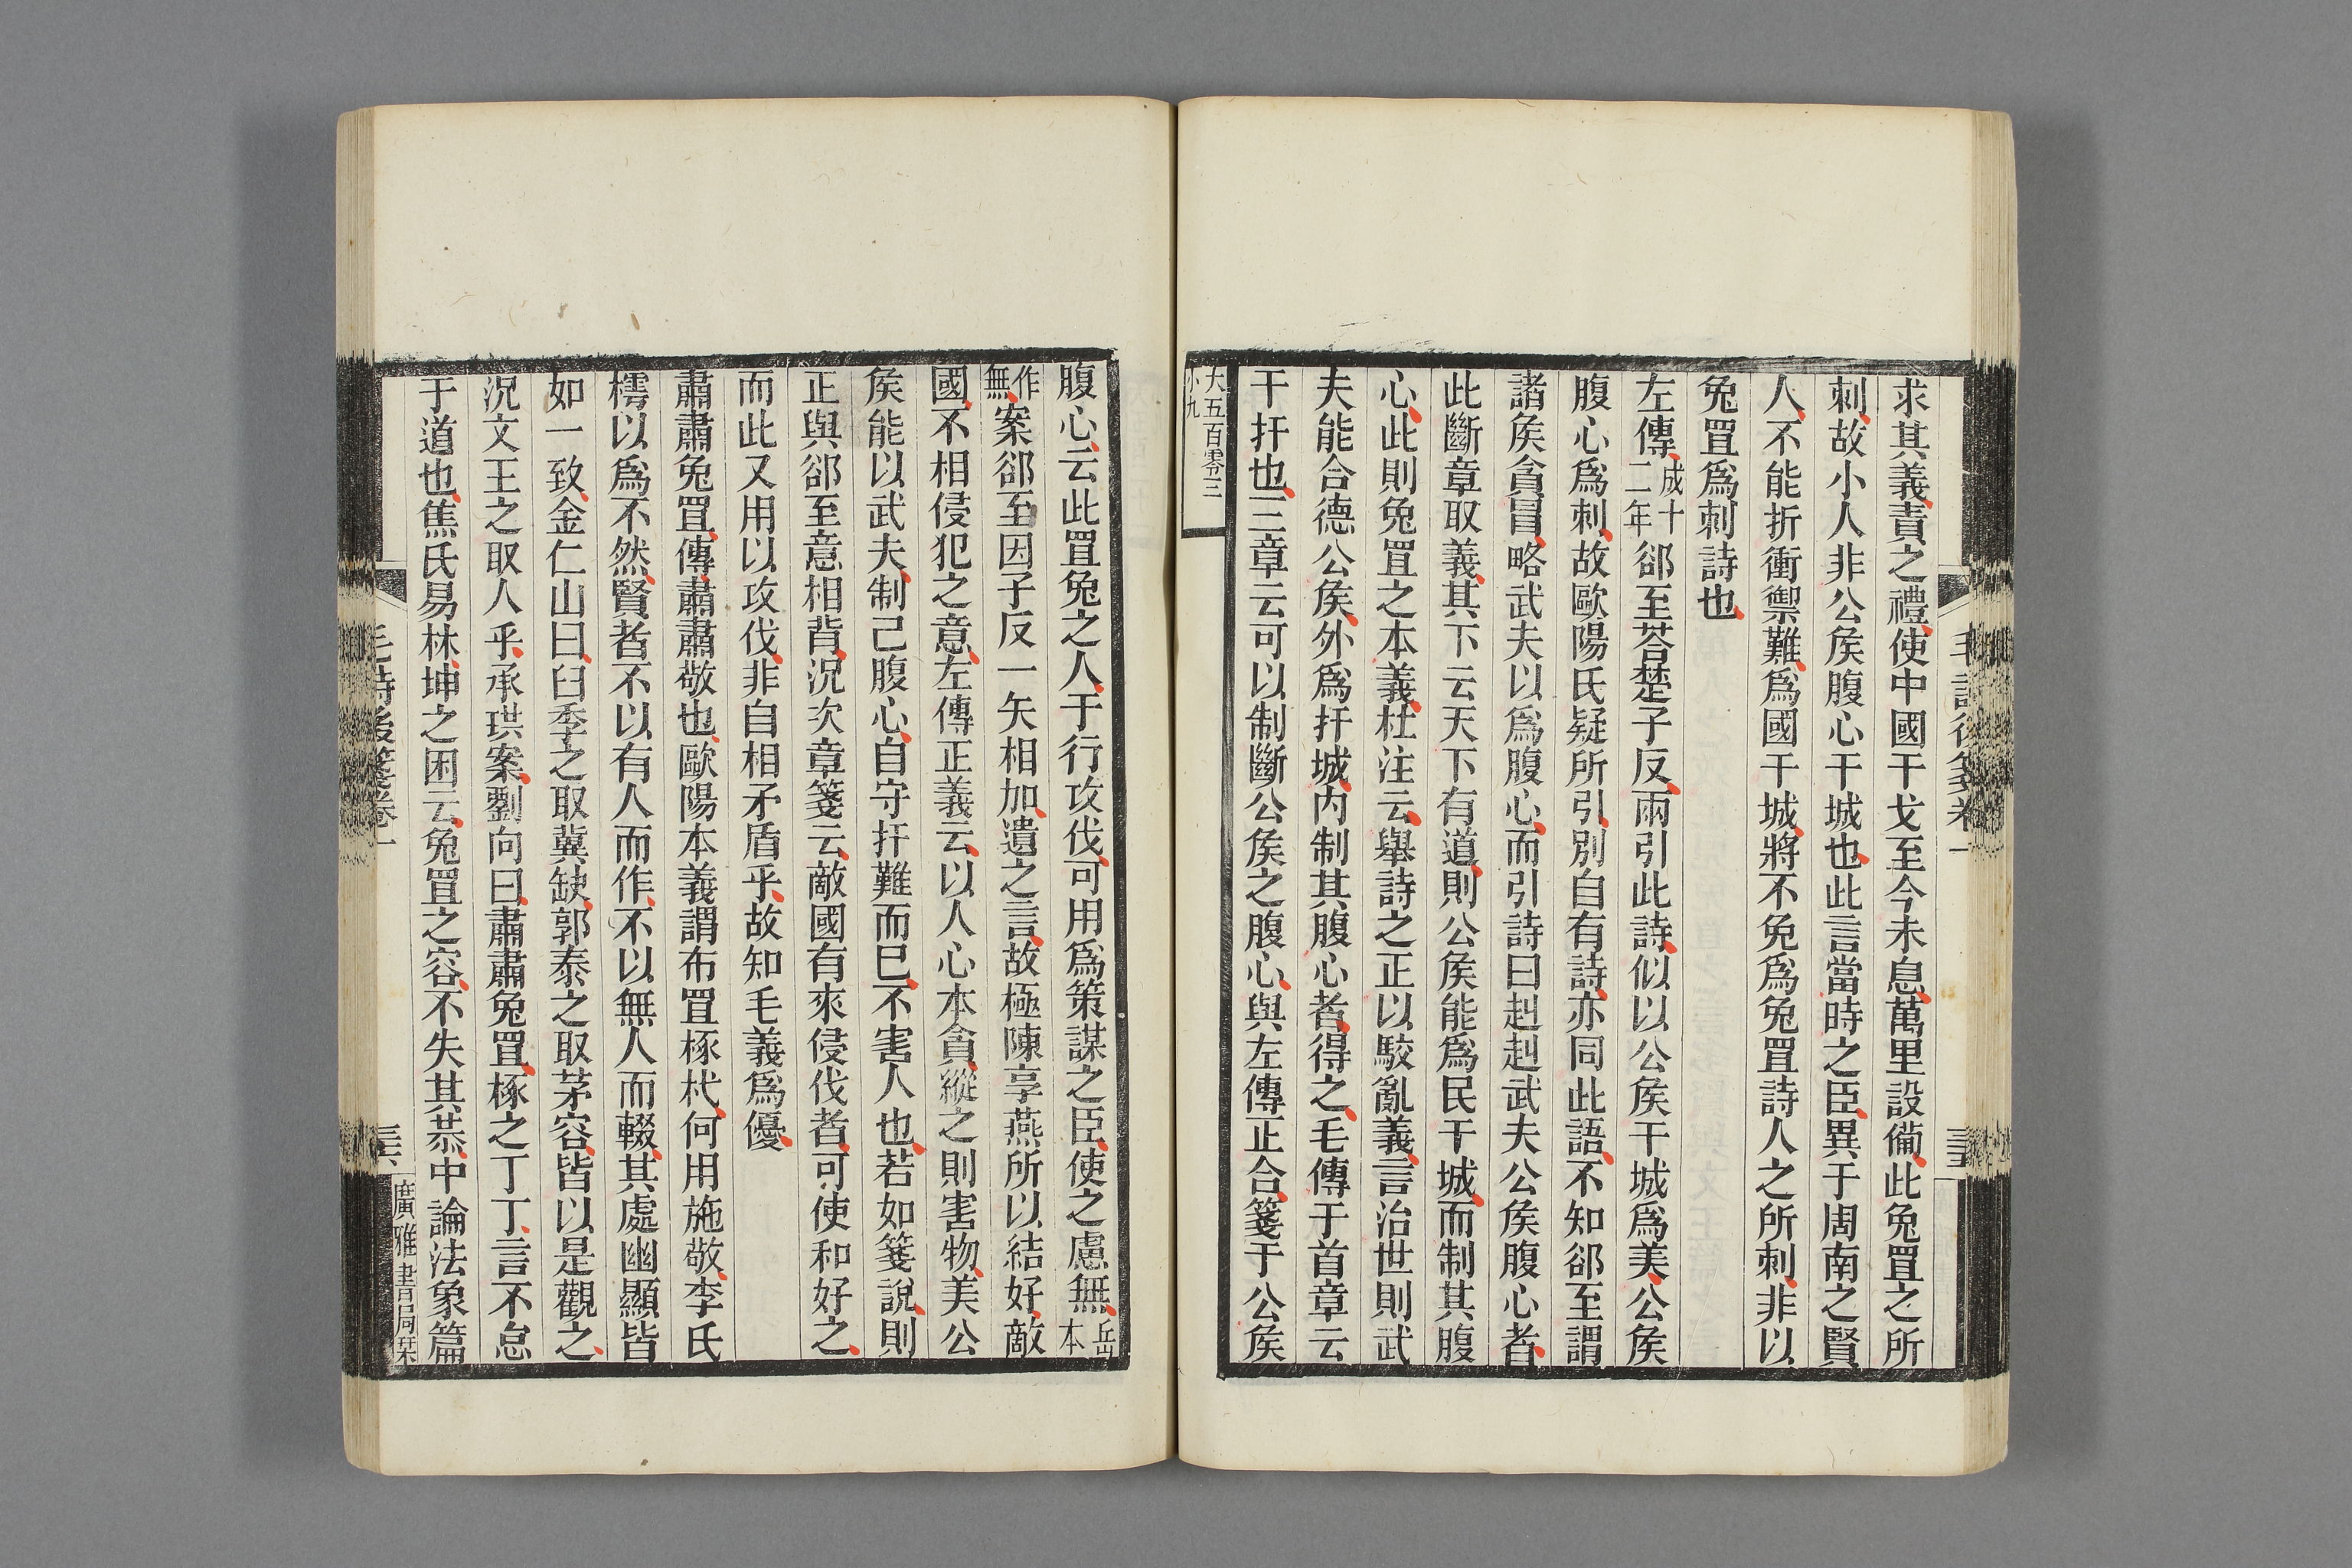 求其義責之禮使中國干戈至今未息萬里設僃此兔罝之所
刺故小人非公矦腹心干城也此言當時之臣異于周南之賢
人不能折衝禦難爲國干城將不免爲兔罝詩人之所刺非以
兔罝爲刺詩也
左傳成十二年郤至荅楚子反兩引此詩似以公矦干城爲美公矦
腹心爲刺故歐陽氏疑所引別自有詩亦同此語不知郤至謂
諸矦貪冒略武夫以爲腹心而引詩曰赳赳武夫公矦腹心者
此斷章取義其下云天下有道則公矦能爲民干城而制其腹
心此則兔罝之本義杜注云舉詩之正以駮亂義言治世則武
夫能合德公矦外爲扞城内制其腹心者得之毛傳于首章云
干扞也三章云可以制斷公矦之腹心與左傳正合箋于公矦
大五百零三
小九
毛詩後箋卷一
腹心云此罝兔之人于行攻伐可用爲策謀之臣使之慮無岳本
作無案郤至因子反一矢相加遺之言故極陳享燕所以結好敵
國不相侵犯之意左傳正義云以人心本貪縱之則害物美公
矦能以武夫制己腹心自守扞難而已不害人也若如箋說則
正與郤至意相背況次章箋云敵國有來侵伐者可使和好之
而此又用以攻伐非自相矛盾乎故知毛義爲優
肅肅兔罝傳肅肅敬也歐陽本義謂布罝椓杙何用施敬李氏
樗以爲不然賢者不以有人而作不以無人而輟其處幽顯皆
如一致金仁山曰臼季之取冀缺郭泰之取茅容皆以是觀之
況文王之取人乎承珙案劉向曰肅肅兔罝椓之丁丁言不怠
于道也焦氏易林坤之困云兔罝之容不失其恭中論法象篇
毛詩後箋卷一
廣雅書局栞